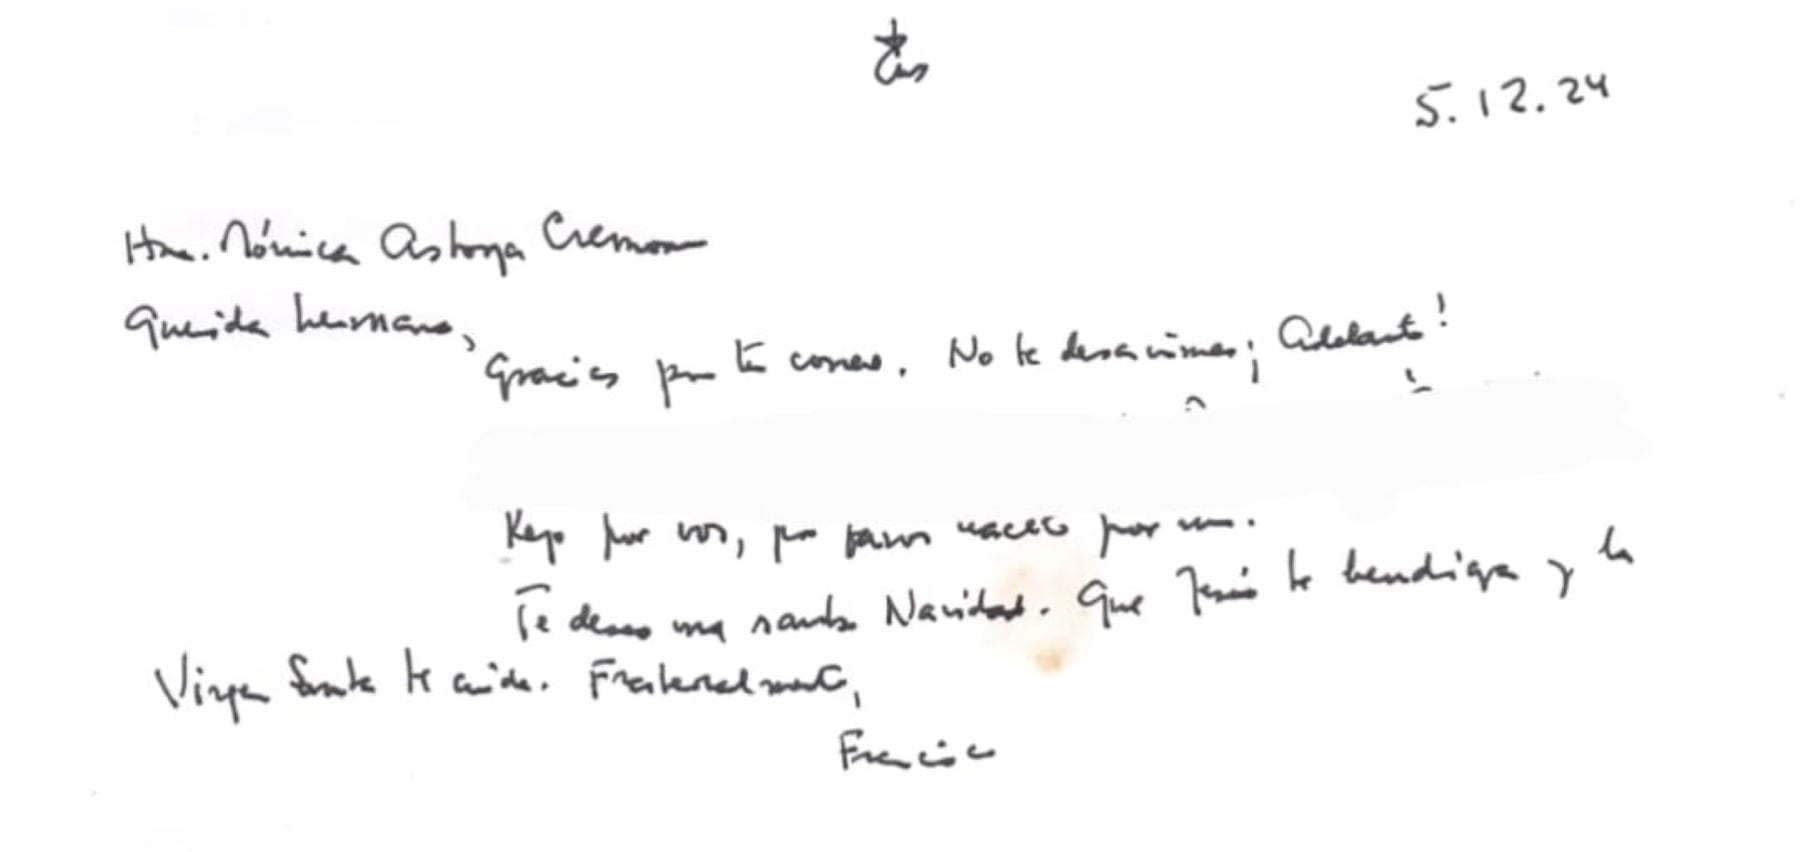 5.12.24
Hna. Mónica Astorga Cremona
Querida hermana,
Gracias por tu correo. No te desanimes; ¡Adelante!
Rezo por vos, por favor hacelo por mí.
Te deseo una santa Navidad. Que Jesús te bendiga y la
Virgen Santa te cuide. Fraternalmente,
Francisco